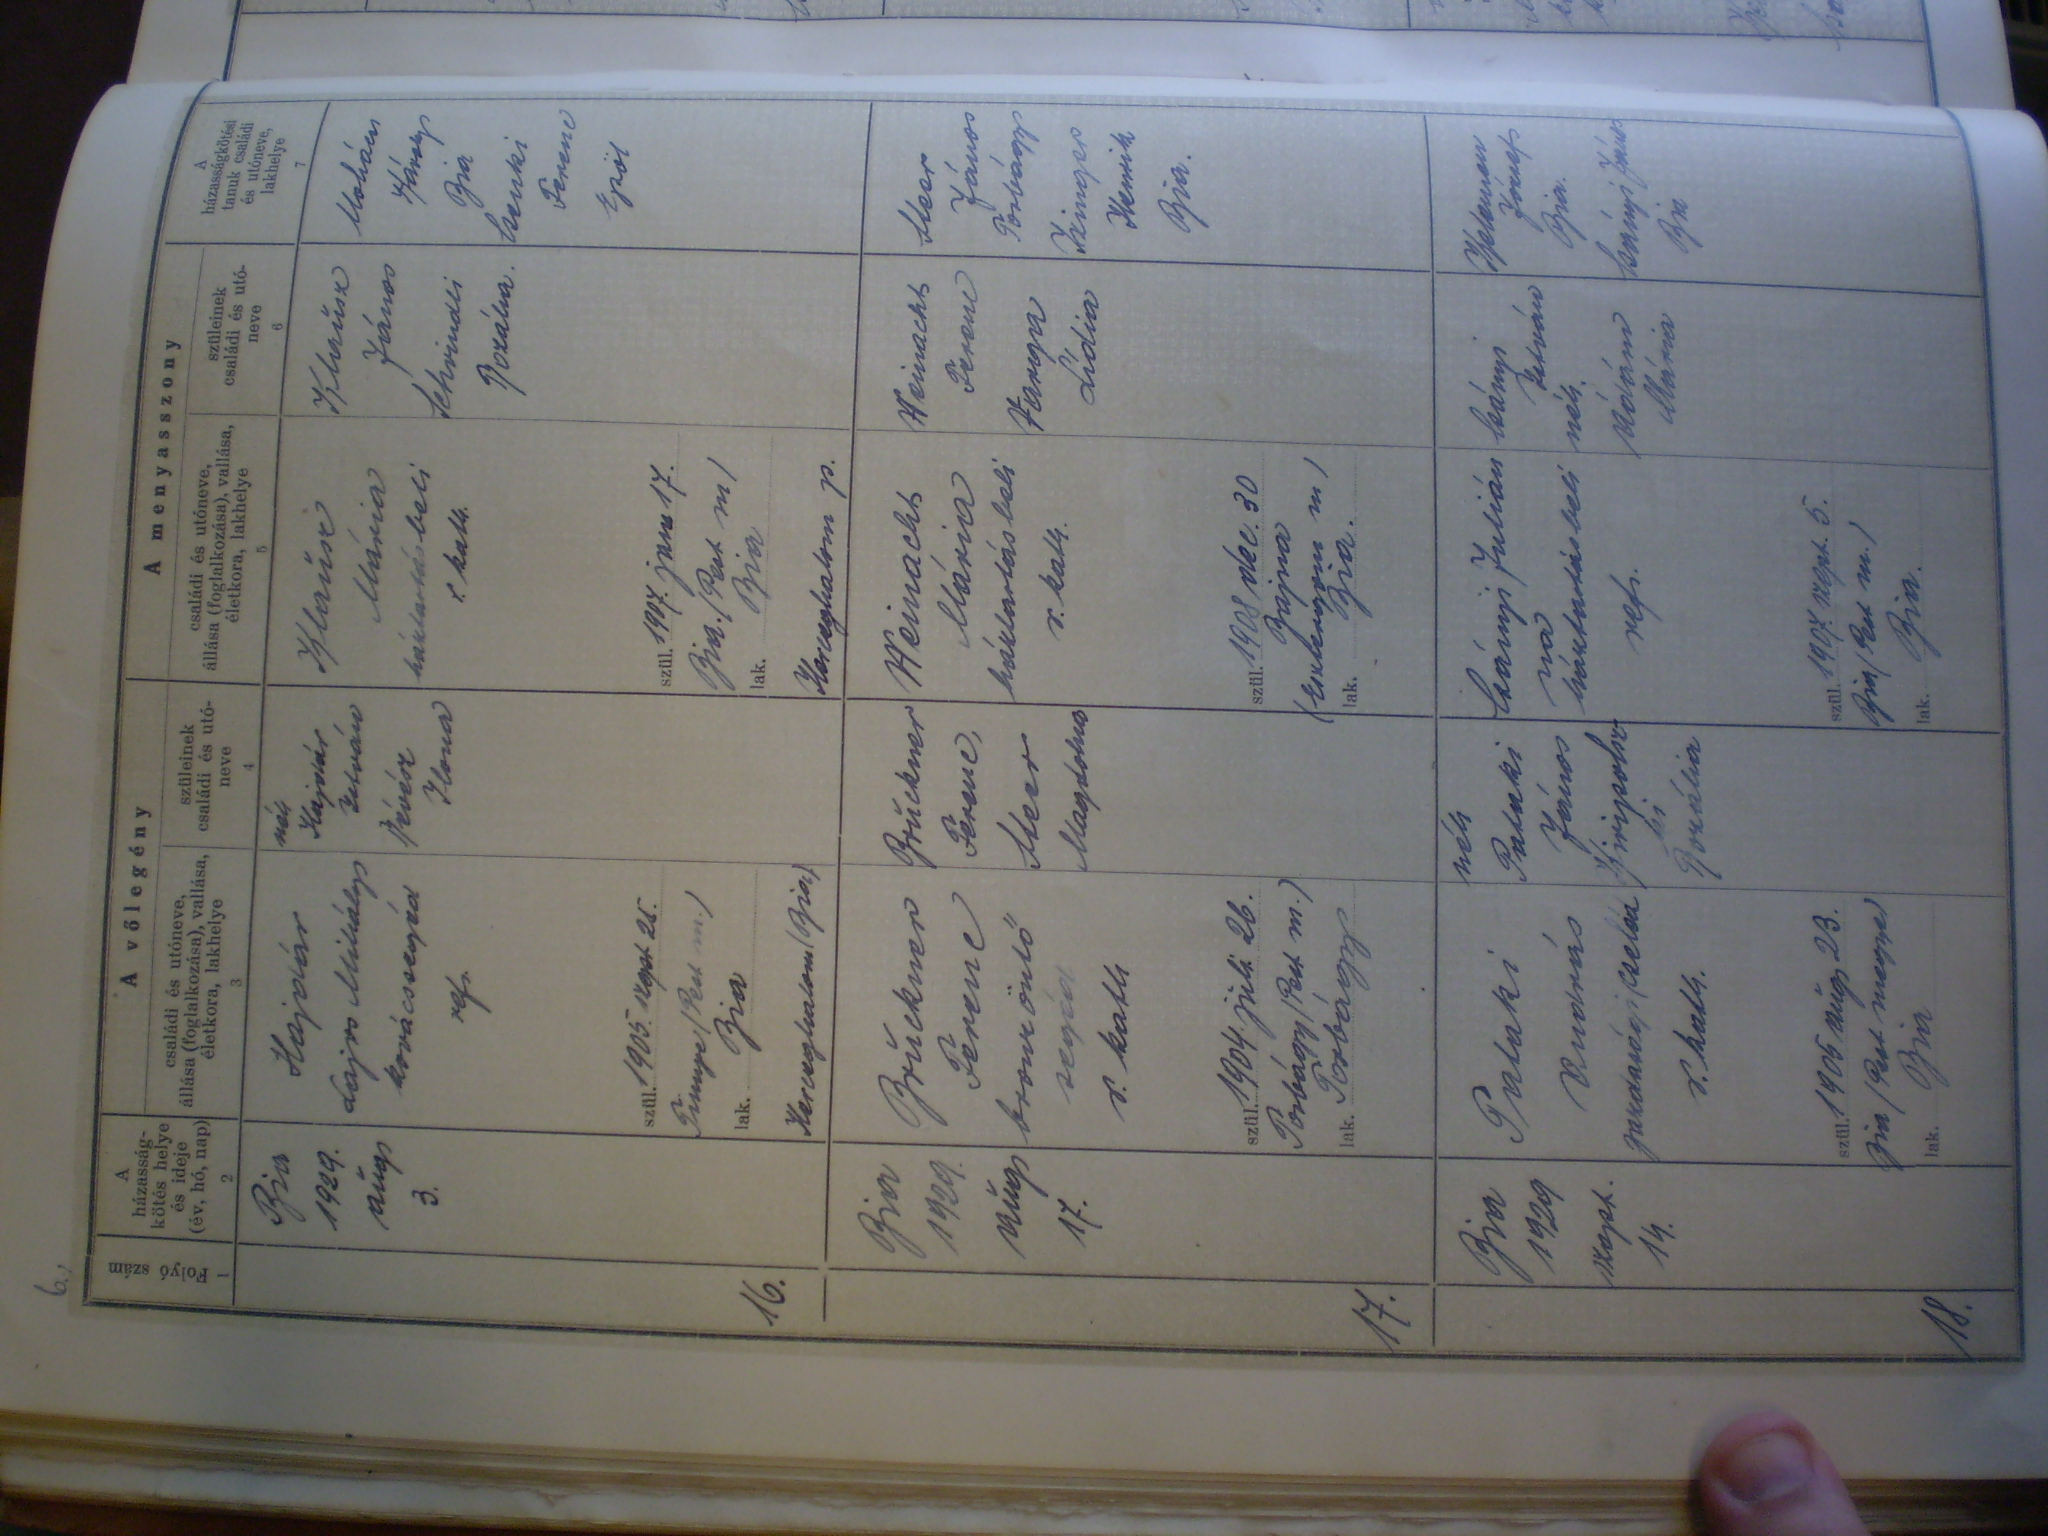 6.
A vőlegény
A menyasszony
Folyó szám
1
A
házasság-
kötés helye
és ideje
(év, hó, nap)
2
családi és utóneve,
állása (foglalkozása), vallása,
életkora, lakhelye
3
szüleinek
családi és utó-
neve
4
családi és utóneve,
állása (foglalkozása), vallása,
életkora, lakhelye
5
szüleinek
családi és utó-
neve
6
A
házasságkötési
tanuk családi
és utóneve,
lakhelye
7
16.
Bia
1929.
aug
3.
Hajdár
Lajos Mihály
kovácssegéd
ref.
szül. 1905. szept 25.
Tinnye (Pest m.)
lak. Bia
Herceghalom (Bia)
néh
Hajdár
István
Ilona
Mária
háztartásbeli
r. kath.
szül. 1907. jan 17.
Bia (Pest m)
lak. Bia
Herceghalom p.
János
Schvindli
Rozália.
Károly
Bia
Ferenc
Epöl
17.
Bia
1929.
aug
17.
Brückner
Ferenc
bronzöntő
segéd
r. kath
szül. 1904. júli 26.
Torbágy (Pest m.)
lak. Torbágy
Brückner
Ferenc,
Steer
Magdolna
Weinacht
Mária
háztartásbeli
r. kath.
szül. 1908 dec. 30
Bajna
(Esztergom m)
lak. Bia.
Weinacht
Ferenc
Varga
Lídia
Steer
János
Torbágy
Henrik
Bia.
18.
Bia
1929
szept.
14.
Pataki
András
gazdasági cseléd
r. kath.
szül. 1905 aug 23.
Bia (Pest megye)
lak. Bia
néh
Pataki
János
Rozália
Julián
na
háztartásbeli
ref.
szül. 1907. szept. 5.
Bia (Pest m.)
lak. Bia.
István
néh.
Mária
József
Bia.
János
Bia